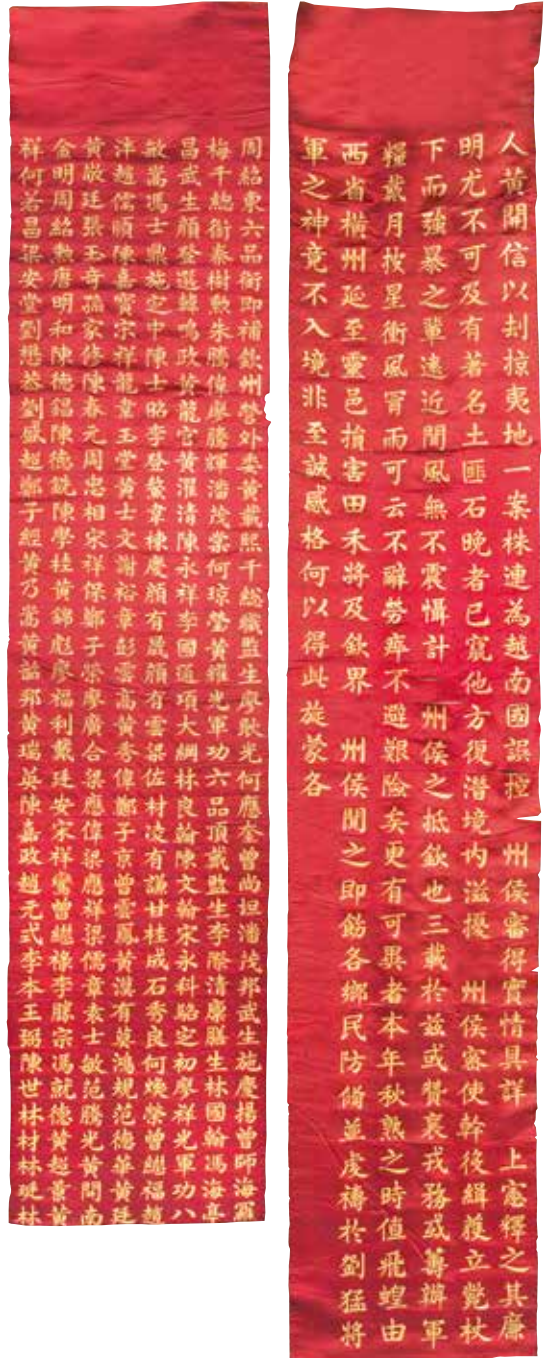 人黃開信以刦掠夷地一案株連為越南國誤控 州侯審得實情具詳 上憲釋之其廉
明尤不可及有著名土匪石晚者已竄他方復潛境内滋擾 州侯密使幹役緝獲立斃杖
下而強暴之輩遠近聞風無不震懾計 州侯之抵欽也三載於兹或贊襄戎務或籌辦軍
糧戴月披星衝風冒雨可云不辭勞瘁不避艱險矣更有可異者本年秋熟之時值飛蝗由
西省橫州延至靈邑損害田禾將及欽界 州侯聞之即飭各鄉民防備並虔禱於劉猛將
軍之神竟不入境非至誠感格何以得此旋蒙各
周紹東六品銜即補欽州營外委黃載熙千總職監生廖耿光何應奎曾尚担潘茂邦武生施慶揚曾師海羅
梅千總銜秦樹勲朱騰偉廖騰輝潘茂棠何琼瑩黃維光軍功六品頂戴監生李際清廩膳生林國翰馮海亭
昌武生顏登選韓鳴政黃龍官黃濯清陳永祥李國通項大綱林良翰陳文翰宋永科駱定初廖祥光軍功八
敏嵩馮士鼎施定中陳士昭李登鰲韋棟慶顏有晟顏有雲梁佐材凌有謙甘桂成石秀良何煥榮曾繼福趙
沣趙儒順陳嘉寳宗祥龍韋玉堂黃士文謝裕章彭雲高黃秀偉鄭子京曾雲鳳黃漢有莫鴻規范德華黃廷
黃啟廷張玉奇孫家修陳春元周忠相宋祥保鄭子榮廖廣合梁應偉梁應祥梁儒章袁士敏范騰光黃問南
金明周紹勲唐明和陳德錩陳德銑陳學桂黃錦彪廖福利戴廷安宋祥鸞曾繼祿李勝宗馮就德黃超景黃
祥何若昌梁安堂劉懋恭劉盛超鄭子經黃乃嵩黃諮邦黃瑞英陳嘉政趙元式李本王弼陳世林材林珽林